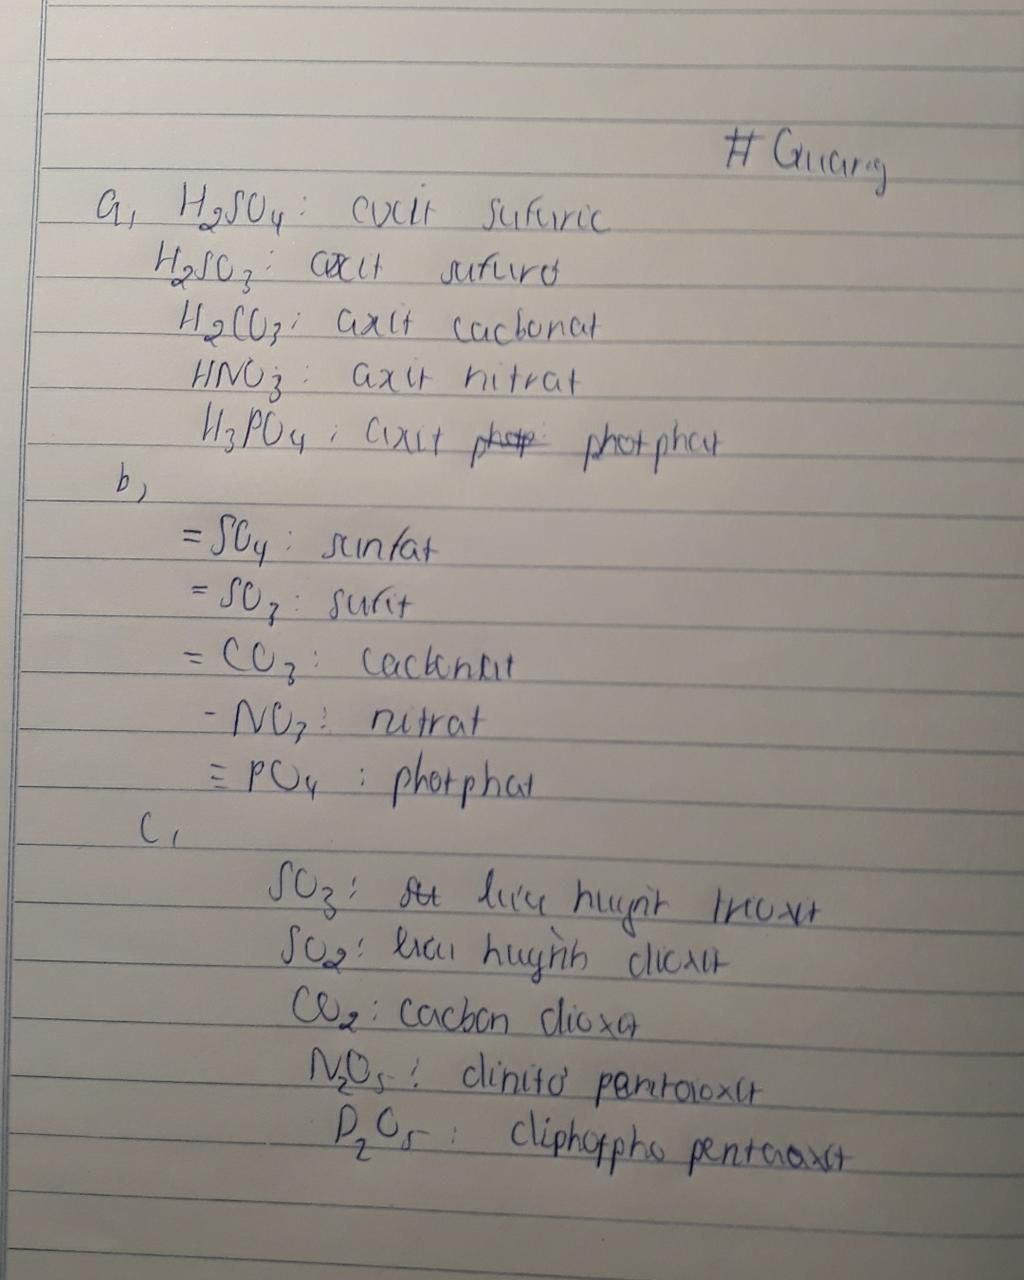 # Quang
a, H₂SO₄: axit sufuric
H₂SO₃: axit sufurơ
H₂CO₃: axit cacbonat
HNO₃: axit nitrat
H₃PO₄: axit photphat
b,
= SO₄: sunfat
= SO₃: sufit
= CO₃: cacbonat
- NO₃: nitrat
≡ PO₄: photphat
c,
SO₃: lưu huỳnh trioxit
SO₂: lưu huỳnh đioxit
CO₂: cacbon đioxit
N₂O₅: đinitơ pentaoxit
P₂O₅: điphotpho pentaoxit